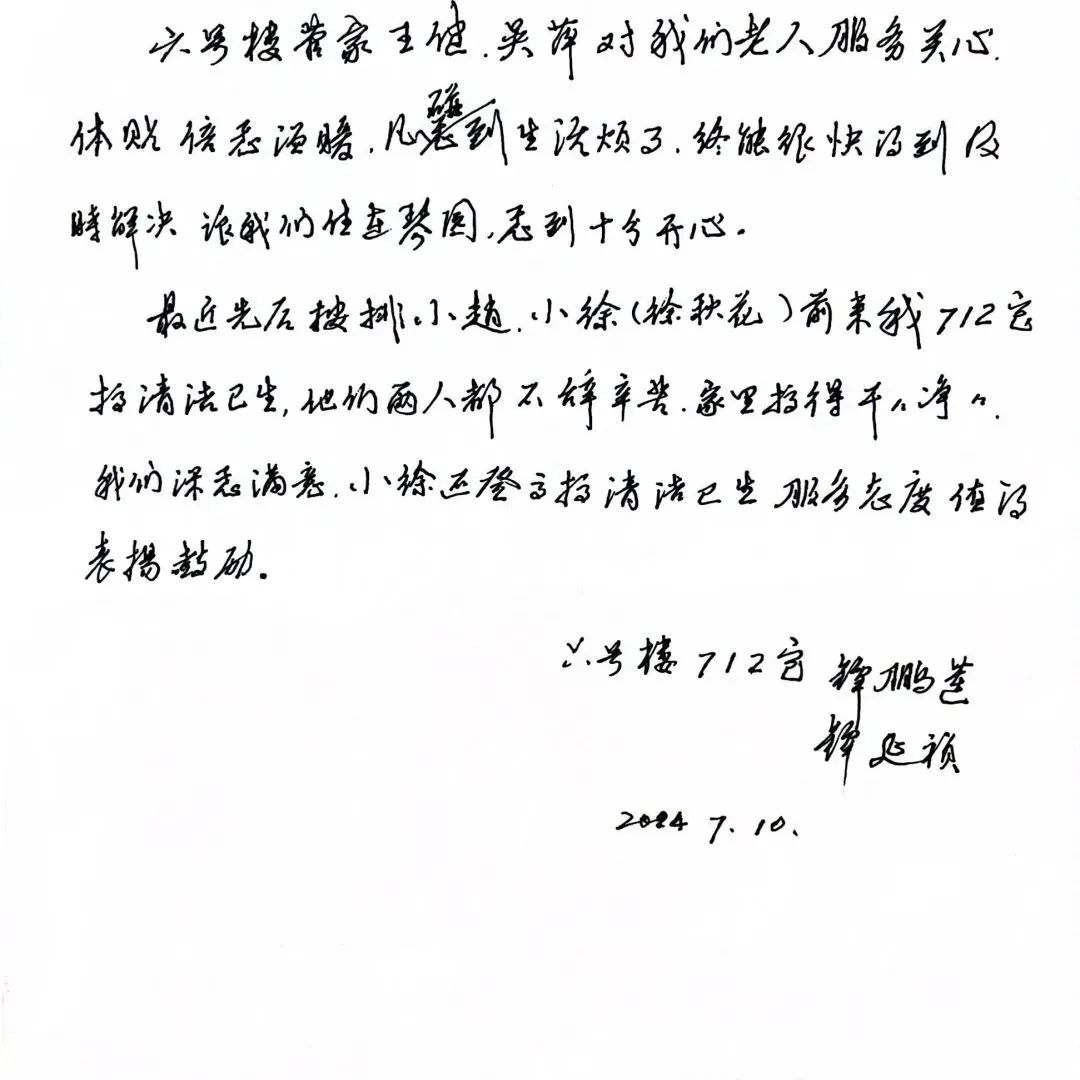 六号楼管家王健.吴萍对我们老人服务关心.
体贴倍感温暖.凡碰到生活烦了.终能很快得到及
时解决 让我们住在琴园.感到十分开心。
最近先后按排小赵.小徐(徐秋花)前来我712室
搞清洁卫生,他们两人都不辞辛苦.家里搞得干〃净〃.
我们深感满意.小徐还登高搞清洁卫生 服务态度值得
表扬鼓励。
六号楼712室 鹏莲
延祯
2024 7.10.